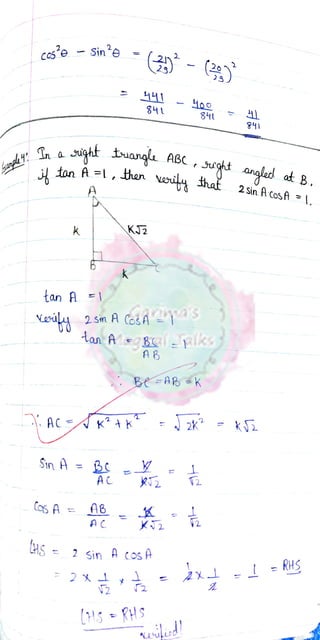 cos²θ - sin²θ = (21/29)² - (20/29)²
= 441/841 - 400/841 = 41/841
Example 4: In a right triangle ABC, right angled at B.
if tan A = 1, then verify that 2 sin A cos A = 1.
A
K K√2
B K C
tan A = 1
verify 2 sin A Cos A = 1
tan A = BC/AB = 1
∴ BC = AB = K
∴ AC = √K² + K² = √2K² = K√2
Sin A = BC/AC = K/K√2 = 1/√2
Cos A = AB/AC = K/K√2 = 1/√2
LHS = 2 sin A cos A
= 2 × 1/√2 × 1/√2 = 2 × 1/2 = 1 = RHS
LHS = RHS
verified!
Garima's
Magical Talks